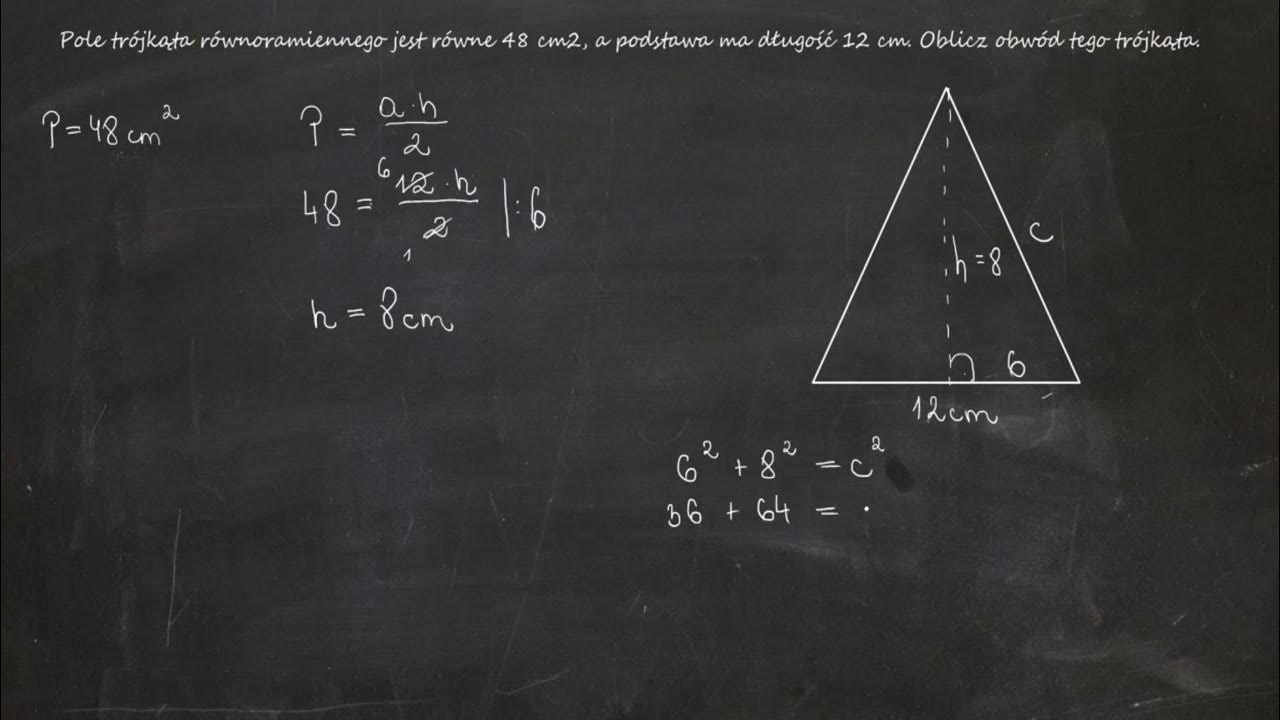 Pole trójkąta równoramiennego jest równe 48 cm2, a podstawa ma długość 12 cm. Oblicz obwód tego trójkąta.
P = 48 cm²
P = a·h / 2
48 = 6 12·h / 2 1 |:6
h = 8cm
c
h = 8
6
12cm
6² + 8² = c²
36 + 64 = ·